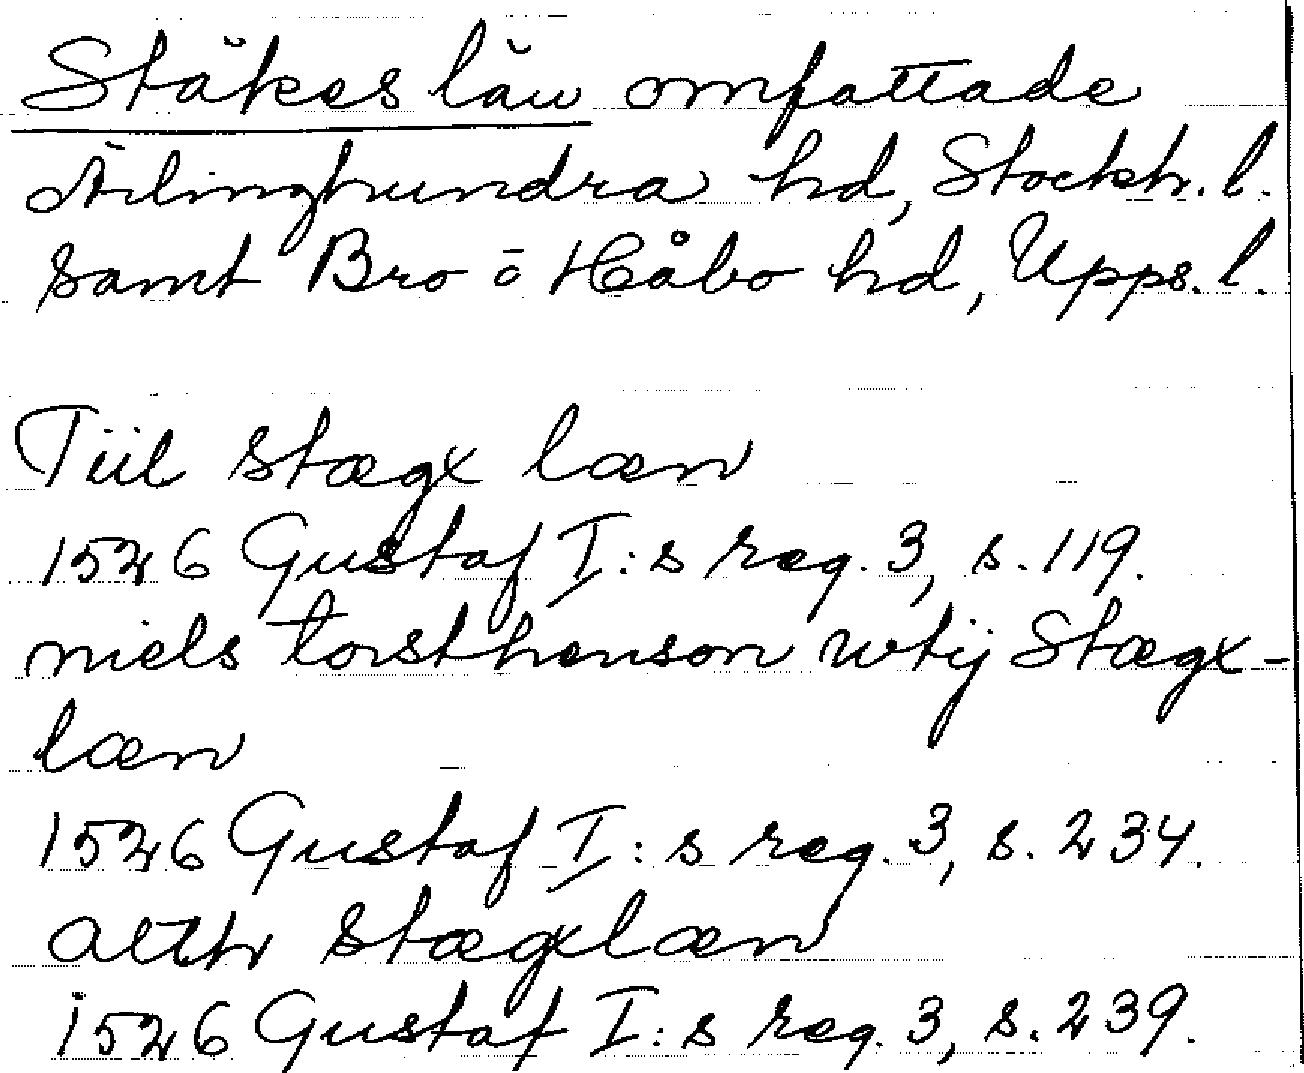 Stäkes län omfattade
Ärlinghundra hd, Stockh. l.
samt Bro o Håbo hd, Upps. l.
Tiil stægx læn
1526 Gustaf I:s reg. 3, s. 119.
niels torsthenson wtij Stægx-
læn
1526 Gustaf I:s reg. 3, s. 234.
alth stægxlæn
1526 Gustaf I:s reg. 3, s. 239.